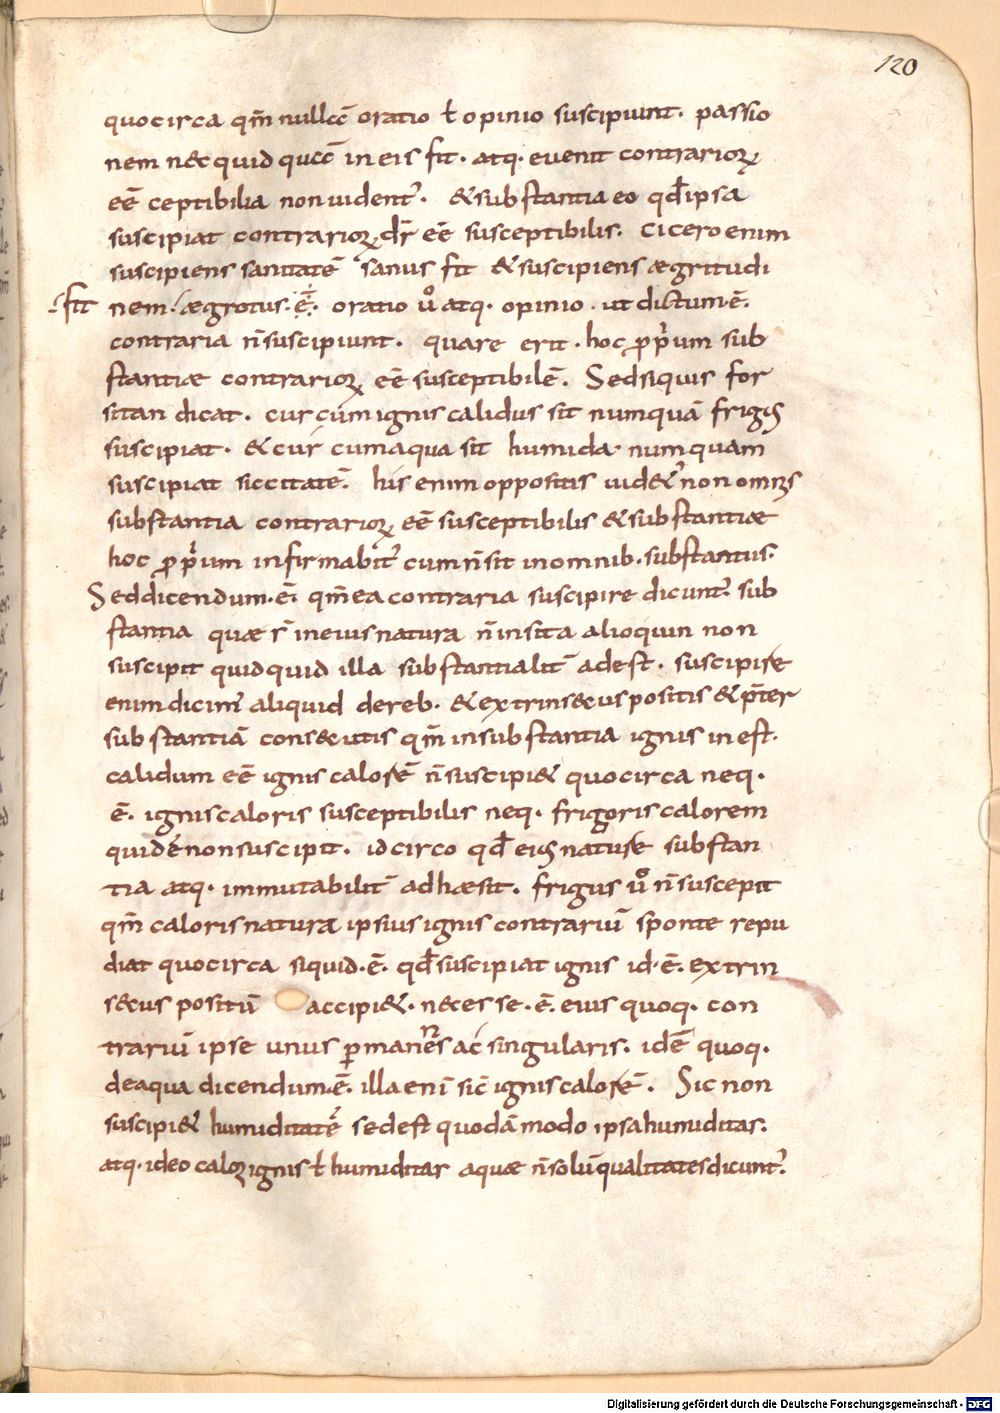 120
quocirca qm̄ nullā oratio ł opinio suscipiunt. passio
nem nec quidquā in eis fit. atq. evenit contrariorꝝ
eē ceptibilia non uident᷒. & substantia eo qđ ipsa
suscipiat contrariorꝝ dr̄ eē susceptibilis. cicero enim
suscipiens sanitatē sanus fit & suscipiens ægritudi
÷ fit nem. ægrotus .ē. oratio ůo atq. opinio. ut dictum .ē.
contraria n̄ suscipiunt. quare erit. hoc ꝓprium sub
stantiæ contrariorꝝ eē susceptibilē. Sed siquis for
sitan dicat. cur cum ignis calidus sit numquā frigꝰ
suscipiat. & cur cum aqua sit humida numquam
suscipiat siccitatē. his enim oppositis uidet᷒ non omnis
substantia contrariorꝝ eē susceptibilis & substantiæ
hoc ꝓprium infirmabit᷒ cum n̄ sit in omnib. substantiis.
Sed dicendum .ē. qm̄ ea contraria suscipere dicunt᷒ sub
stantia quæ r̄ in eius natura n̄ insita alioquin non
suscipit quidquid illa substantialit̄ adest. suscipere
enim dicim᷒ aliquid de reb. & extrinsecus positis & p̄ter
substantiā consecutis qm̄ in substantia ignis inest.
calidum eē ignis calorē n̄ suscipi& quocirca neq.
ē. ignis caloris susceptibilis neq. frigoris calorem
quidē non suscipit. idcirco qđ eiꝰ naturæ substan
tia atq. immutabilit̄ adhæsit. frigus ůo n̄ suscepit
qm̄ caloris natura ipsius ignis contrariū sponte repu
diat quocirca siquid .ē. qđ suscipiat ignis id .ē. extrin
secus positū accipi&. necesse .ē. eius quoq. con
trariū ipse unus ꝑmanens ac singularis. idē quoq.
de aqua dicendum .ē. illa enī sic̄ ignis calorē. Sic non
suscipi& humiditatē sed est quodā modo ipsa humiditas.
atq. ideo calor ignis ł humiditas aquæ n̄ solū qualitates dicunt᷒.
Digitalisierung gefördert durch die Deutsche Forschungsgemeinschaft - DFG